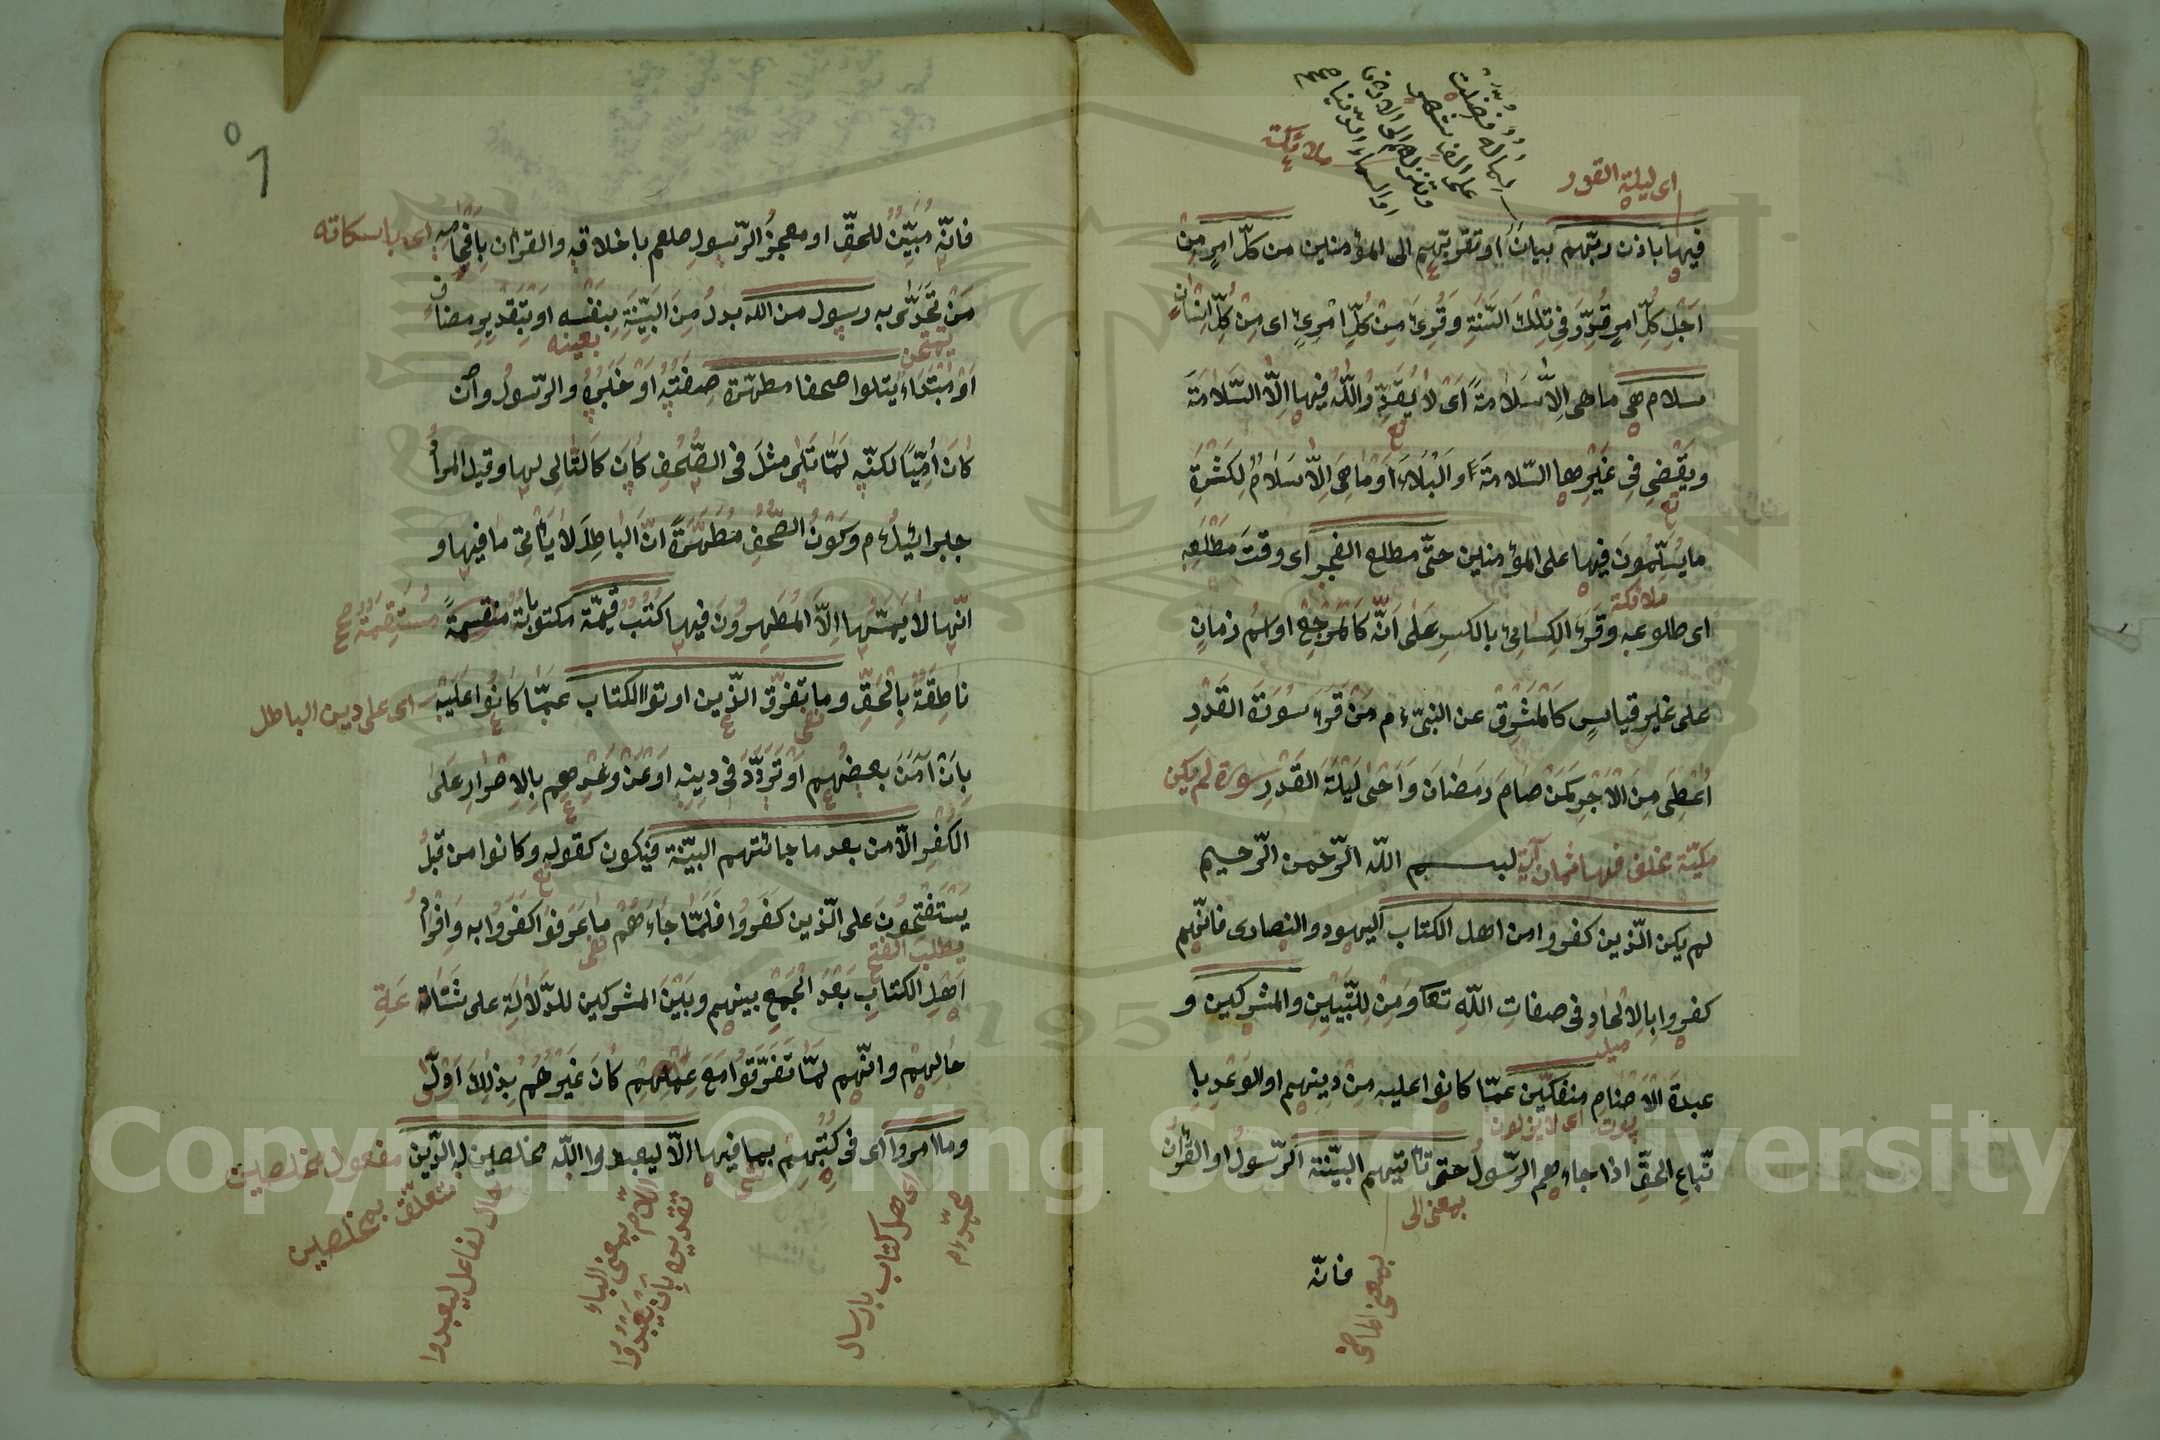 اى ليلة القدر
فيها باذن ربّهم بيان او تقرّبهم الى المؤمنين من كلّ امر مِن
اَجْلِ كُلِّ امرٍ قُدِّرَ فِى تِلْكَ السَّنَةِ وَقُرِئَ مِنْ كُلِّ امْرِئٍ اى مِنْ كُلِّ اِنسَانٍ
سلام هى ما هى اِلاَّ سَلَامَةٌ اَىْ لا يُقَدِّرُ اللّٰهُ فيها اِلاَّ السَّلامَةَ
ويَقْضِى فِى غَيْرِها السّلامَةَ والْبَلَاءَ اَوْ مَا هِىَ اِلاَّ سَلَامٌ لِكَثْرَةِ
ما يُسَلِّمُونَ فِيهَا على المؤمنين حتّى مطلع الفجر اى وقتَ مَطْلَعِهِ
ملائكة
اى طلوعه وقَرَءَ الكِسائِىُّ بالكسرِ عَلى اَنَّهُ كَالْمَرْجِعِ او اسْمُ زمانٍ
على غيرِ قياسٍ كَالْمَشْرِقِ عن النبىّ ءم مَنْ قَرَءَ سُورَةَ القَدْرِ
اُعْطِىَ مِنَ الْاَجْرِ كَمَنْ صَامَ رَمَضَانَ وَاَحْىٰ لَيْلَةَ القَدْرِ سورة لم يكن
مكيّة مختلف فيها ثمان آية بسم اللّه الرّحمن الرّحيم
لم يكن الّذين كفروا من اهل الكتاب اليهود والنصارى فانّهم
كفروا بِالاِلْحَادِ فى صفاتِ اللّهِ تعا ومِنْ لِلتَّبْيِينِ والمشركين و
عبدة الْاَصْنامِ منفكّين عمّا كانوا عليه مِنْ دِينِهم او الوَعْدِ با
تّباعِ الحقِّ اذا جاءهم الرّسُولُ حتى تأتيهم البيّنة الرّسولُ او القُرآنُ
بمعنى الى
بمعنى الماضى
فانّه
فانّه مُبَيِّنٌ للحقِّ او معجزُ الرّسولِ صلعم باخلاقه والقرآن بِاِفْحَامِهِ اى باسكاته
مَنْ تَحَدّٰى به رسول من اللّه بدلٌ مِنَ البَيِّنَةِ بِنَفْسِه اَوْ بِتَقْدِيرِ مضافٍ
بعينه
اَوْ مُبْتَدَاءٌ يتلوا صحفا مطهّرة صِفَتُهُ اَوْ خَبَرُهُ والرّسولُ وانْ
كانَ اُمِّيًّا لكنّه لمّا تَلٰى مثلَ فى الصُّحُفِ كانَ كالتّالِى لها وقيل المرادُ
جبرائيلُ ءم وكونُ الصُّحُفِ مُطَهَّرَةً انّ الباطِلَ لا يأتى ما فيها و
انّها لا يَمَسُّها اِلاَّ الْمُطَهَّرُونَ فيها كُتُبٌ قيّمة مكتوباتٌ مستقيمةٌ مُسْتَقِيمَةٌ صح
ناطِقَةٌ بِالْحَقِّ وما تفرّق الّذين اوتوا الكتاب عمّا كانُوا عَلَيْهِ اى على دين الباطل
بِاَنْ آمَنَ بعضُهم اَوْ تَرَدَّدَ فى دِينِه اوْ عَنْ وعْدِهِم بِالاِصْرارِ عَلى
الكُفْرِ الاّ من بعد ما جائتهم البيّنة فيكون كقوله وكانوا من قبلُ
يَسْتَفْتِحُونَ عَلى الّذين كفروا فلمّا جاءهم ما عَرَفوا كفروا به وَاِفْرادُ
يطلب الفتح
اَهْلِ الكتابِ بَعْدَ الْجَمْعِ بينهم وبَيْنَ المشركين للدّلالَةِ على شناعَةِ
حالِهِمْ وانّهم لَمَّا تفرّقوا مَعَ عِلْمِهِمْ كانَ غَيْرُهُمْ بِذٰلِكَ اَوْلٰى
وما امروا اى فى كُتُبِهِمْ بما فيها الاّ ليعبدوا اللّه مخلصين له الدّين مفعول مخلصين
متعلّق بمخلصين
حال لفاعل ليعبدوا
اللّام بمعنى الباء
تقديره بان يعبدوا
اى اهل كتاب بارسال
محمّد ءم
Copyright © King Saud University
1957